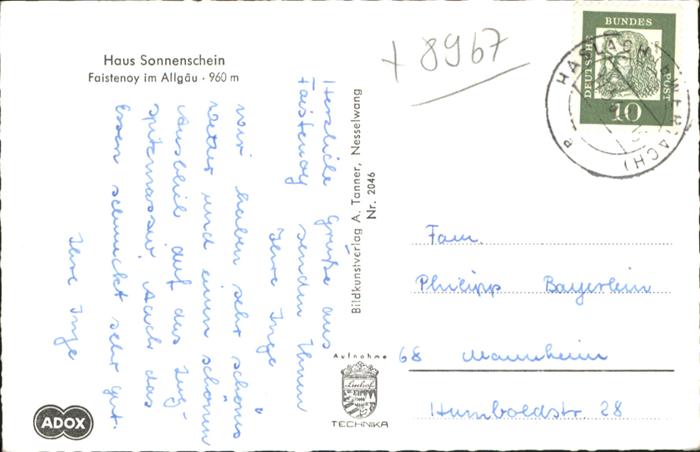 Haus Sonnenschein
Faistenoy im Allgäu · 960 m
+ 8967
DEUTSCHE
BUNDES
POST
10
HASLACH
Herzliche Grüße aus
Faistenoy senden Ihnen
Ihre Inge
wir haben sehr schönes
Wetter und einen schönen
Ausblick auf das Zug-
spitzmassiv. Auch das
Essen schmeckt sehr gut.
Ihre Inge
Bildkunstverlag A. Tanner, Nesselwang
Nr. 2046
Fam.
Philipp Bayerlein
68 Mannheim
Humboldstr. 28
Aufnahme
TECHNIKA
ADOX